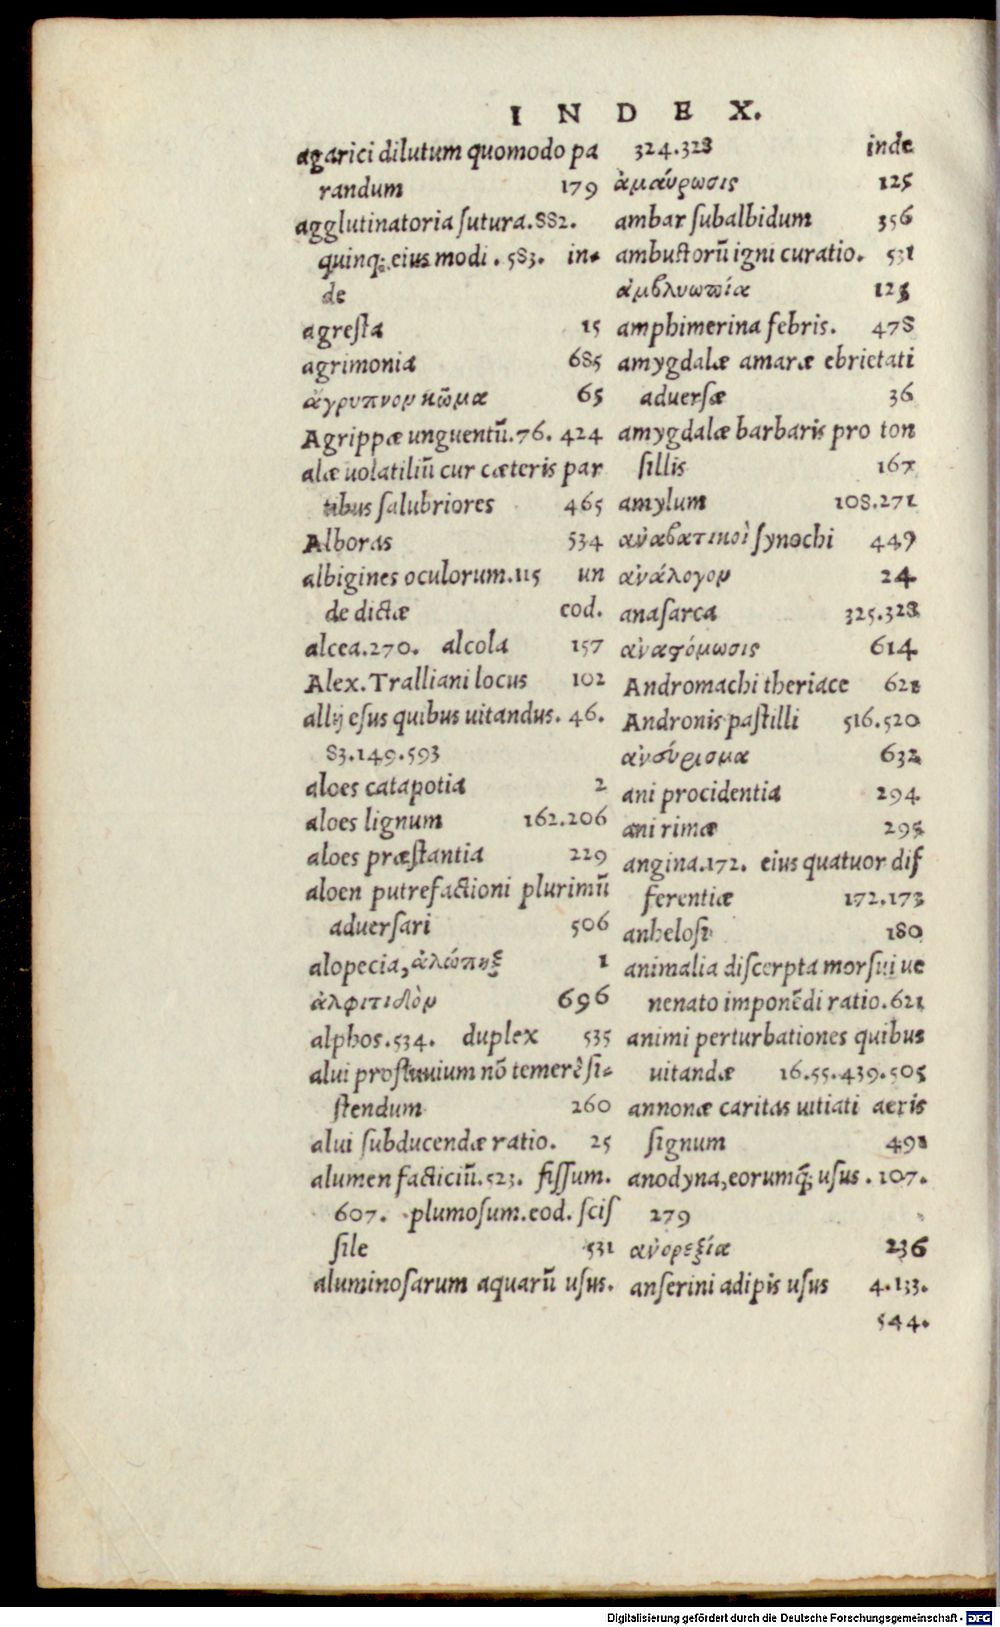 INDEX.
agarici dilutum quomodo pa
randum 179
agglutinatoria ſutura.882.
quinq; eius modi. 583. in-
de
agreſta 15
agrimonia 685
ἄγρυπνον κῶμα 65
Agrippæ unguentũ.76. 424
alæ uolatiliũ cur cæteris par
tibus ſalubriores 465
Alboras 534
albigines oculorum.115 un
de dictæ eod.
alcea.270. alcola 157
Alex. Tralliani locus 102
allij eſus quibus uitandus. 46.
83.149.593
aloes catapotia 2
aloes lignum 162.206
aloes præſtantia 229
aloen putrefactioni plurimũ
aduerſari 506
alopecia, ἀλώπηξ 1
ἀλφιτιδὸν 696
alphos.534. duplex 535
alui profluuium nõ temerè ſi-
ſtendum 260
alui ſubducendæ ratio. 25
alumen facticiũ.523. fiſſum.
607. plumoſum.eod. ſciſ
ſile 531
aluminoſarum aquarũ uſus.
324.328 inde
ἀμαύρωσις 125
ambar ſubalbidum 356
ambuſtorũ igni curatio. 531
ἀμβλυωπία 125
amphimerina febris. 478
amygdalæ amaræ ebrietati
aduerſæ 36
amygdalæ barbaris pro ton
ſillis 167
amylum 108.271
ἀναβατικοὶ ſynochi 449
ἀνάλογον 24
anaſarca 325.328
ἀναστόμωσις 614
Andromachi theriace 621
Andronis paſtilli 516.520
ἀνεύρισμα 632
ani procidentia 294
ani rimæ 295
angina.172. eius quatuor dif
ferentiæ 172.173
anheloſi 180
animalia diſcerpta morſui ue
nenato imponẽdi ratio.621
animi perturbationes quibus
uitandæ 16.55.439.505
annonæ caritas uitiati aeris
ſignum 491
anodyna, eorumq; uſus. 107.
279
ἀνορεξία 236
anſerini adipis uſus 4.133.
544.
Digitalisierung gefördert durch die Deutsche Forschungsgemeinschaft - DFG